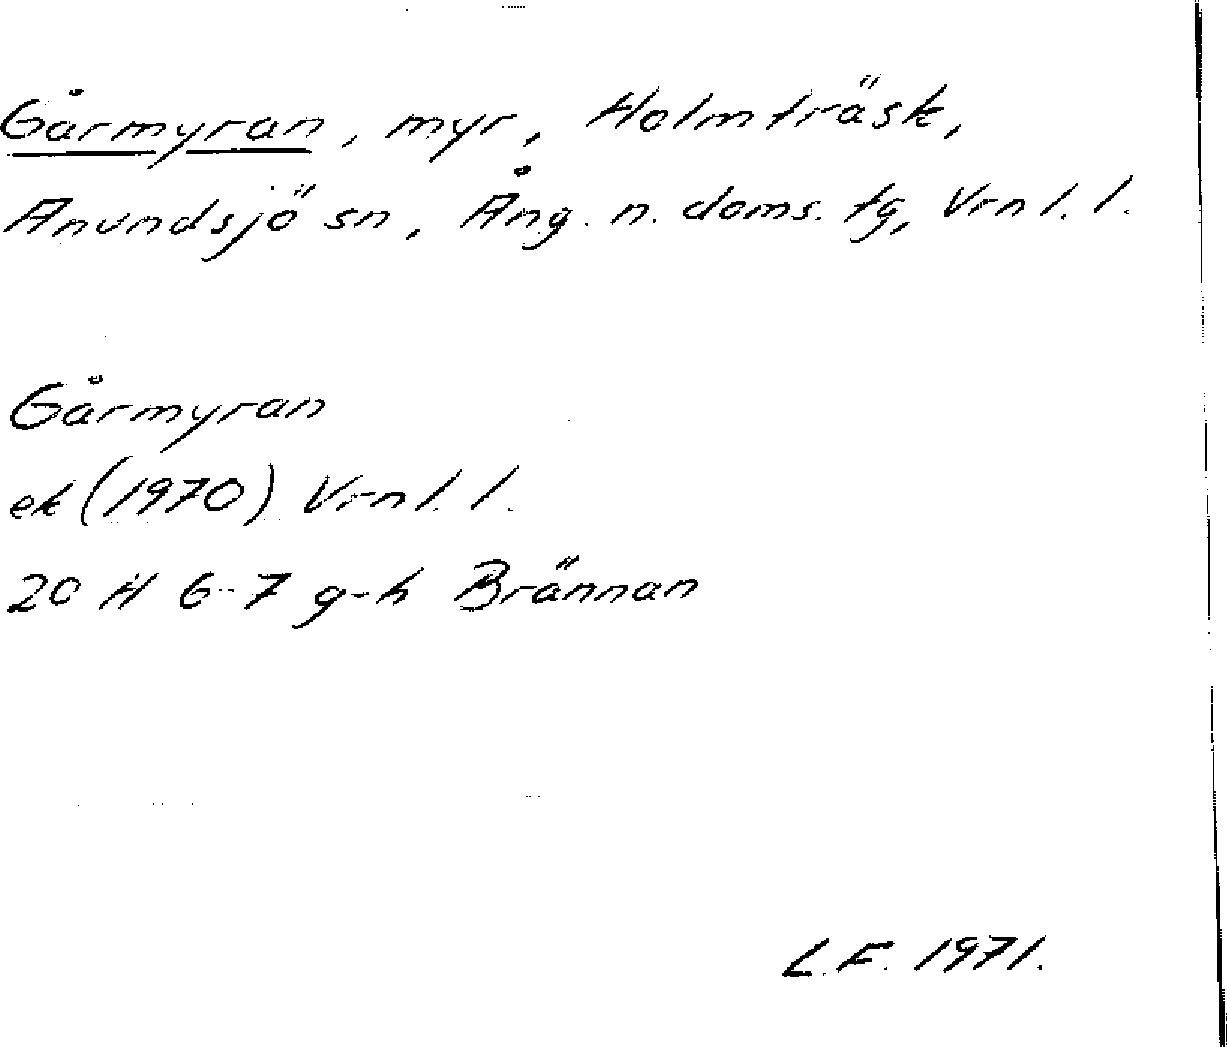 Gårmyran, myr, Holmträsk,
Anundsjö sn, Ång. n. doms. tg, Vrnl. l.
Gårmyran
ek (1970) Vrnl. l.
20 H 6-7 g-h Brännan
L.F. 1971.